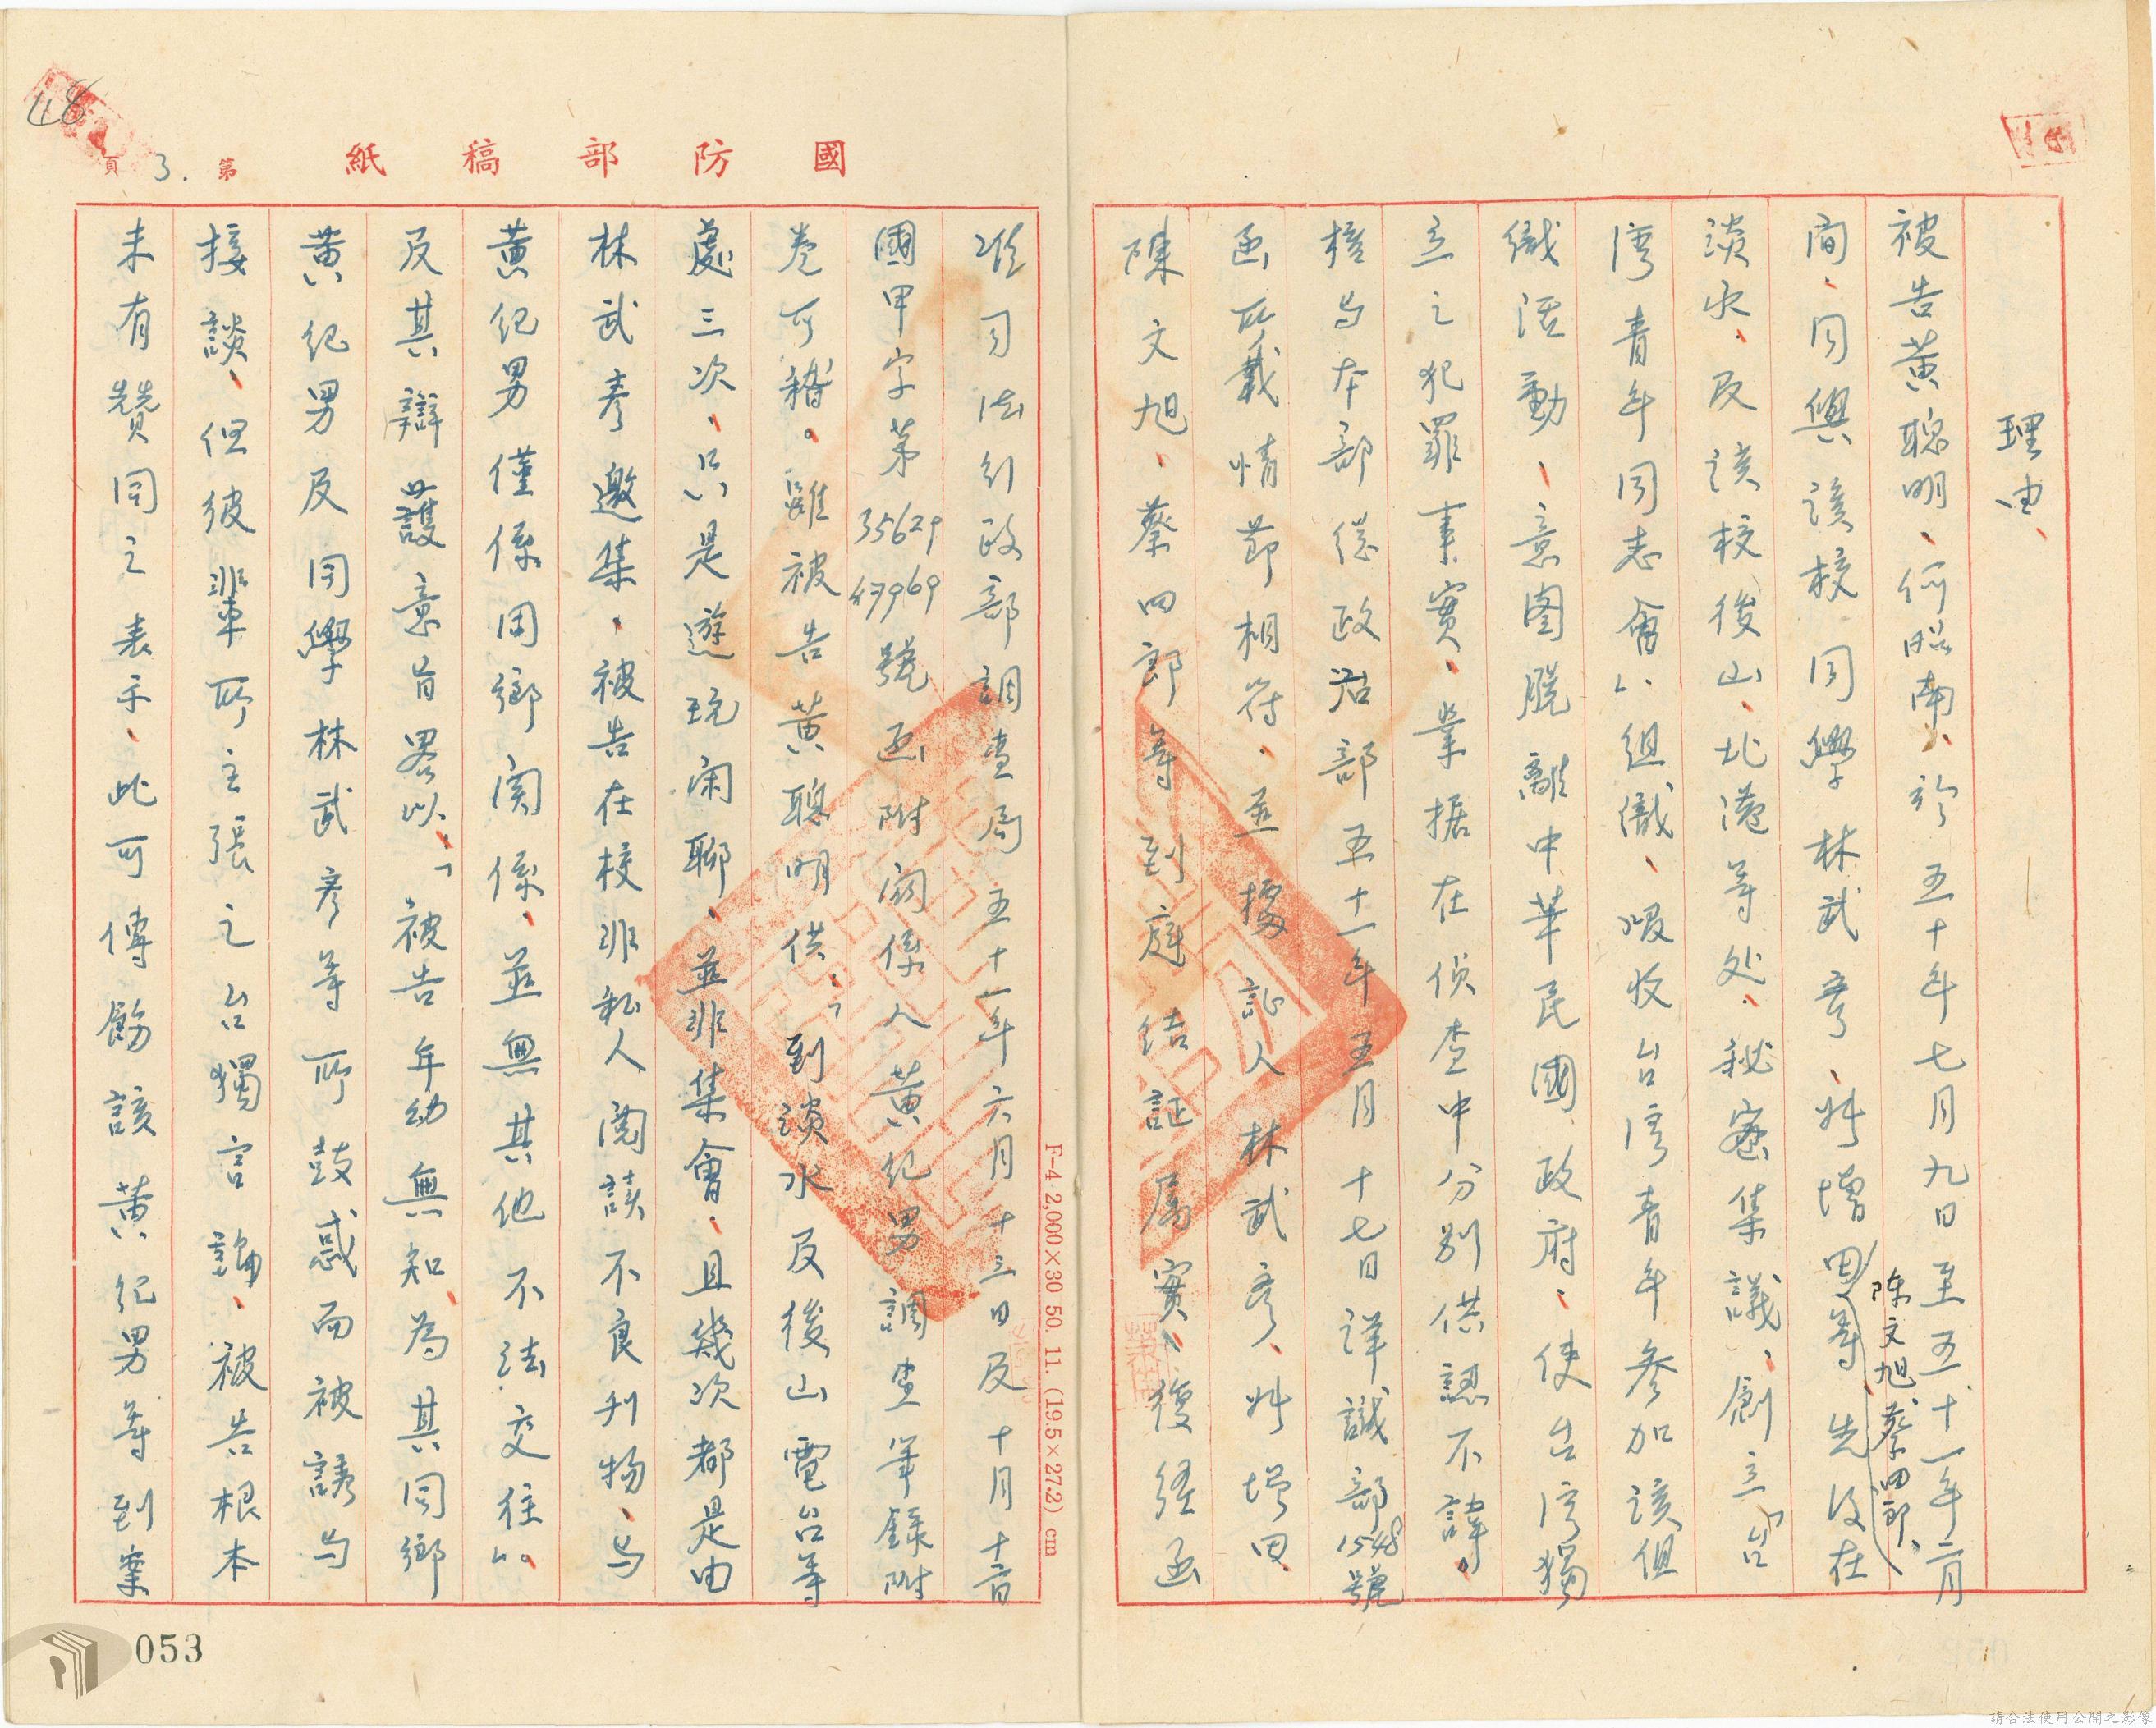 理由、
被告黃聰明、何昭南、於五十年七月九日至五十一年二月
間、同與該校同學林武彥、叶增田陳文旭、蔡四郎、等、先后在
淡水、及該校後山、北港等处、秘密集議、創立「台
湾青年同志會」組織、吸收台湾青年參加該組
織活動、意图脫離中華民國政府、使台湾獨
立之犯罪事實、業据在偵查中分别供認不諱。
核与本部總政治部五十一年五月十七日詳誠部1548號
函所載情節相符、並據証人林武彥、叶增田、
陳文旭、蔡四郎等到庭结証屬實、復經函
准司法行政部調查局五十一年六月十三日及十月十二日
國甲字第35629 47969號函附関係人黃紀男調查笔錄附
卷可稽。雖被告黃聰明供：「到淡水及後山電台等
處三次、只是遊玩闲聊、並非集會、且幾次都是由
林武彥邀集、被告在校非私人閱讀不良刊物、与
黃紀男僅係同鄉関係、並無其他不法交往」。
及其辯護意旨畧以：「被告年幼無知、為其同鄉
黃紀男及同學林武彥等所鼓惑而被誘与
接談、但彼輩所主張之台獨言論、被告根本
未有贊同之表示、此可傳飭該黃紀男等到案
國防部稿紙
第3.頁
48
F-4 2,000×30 50. 11. (19.5×27.2) cm
053
請合法使用公開之影像